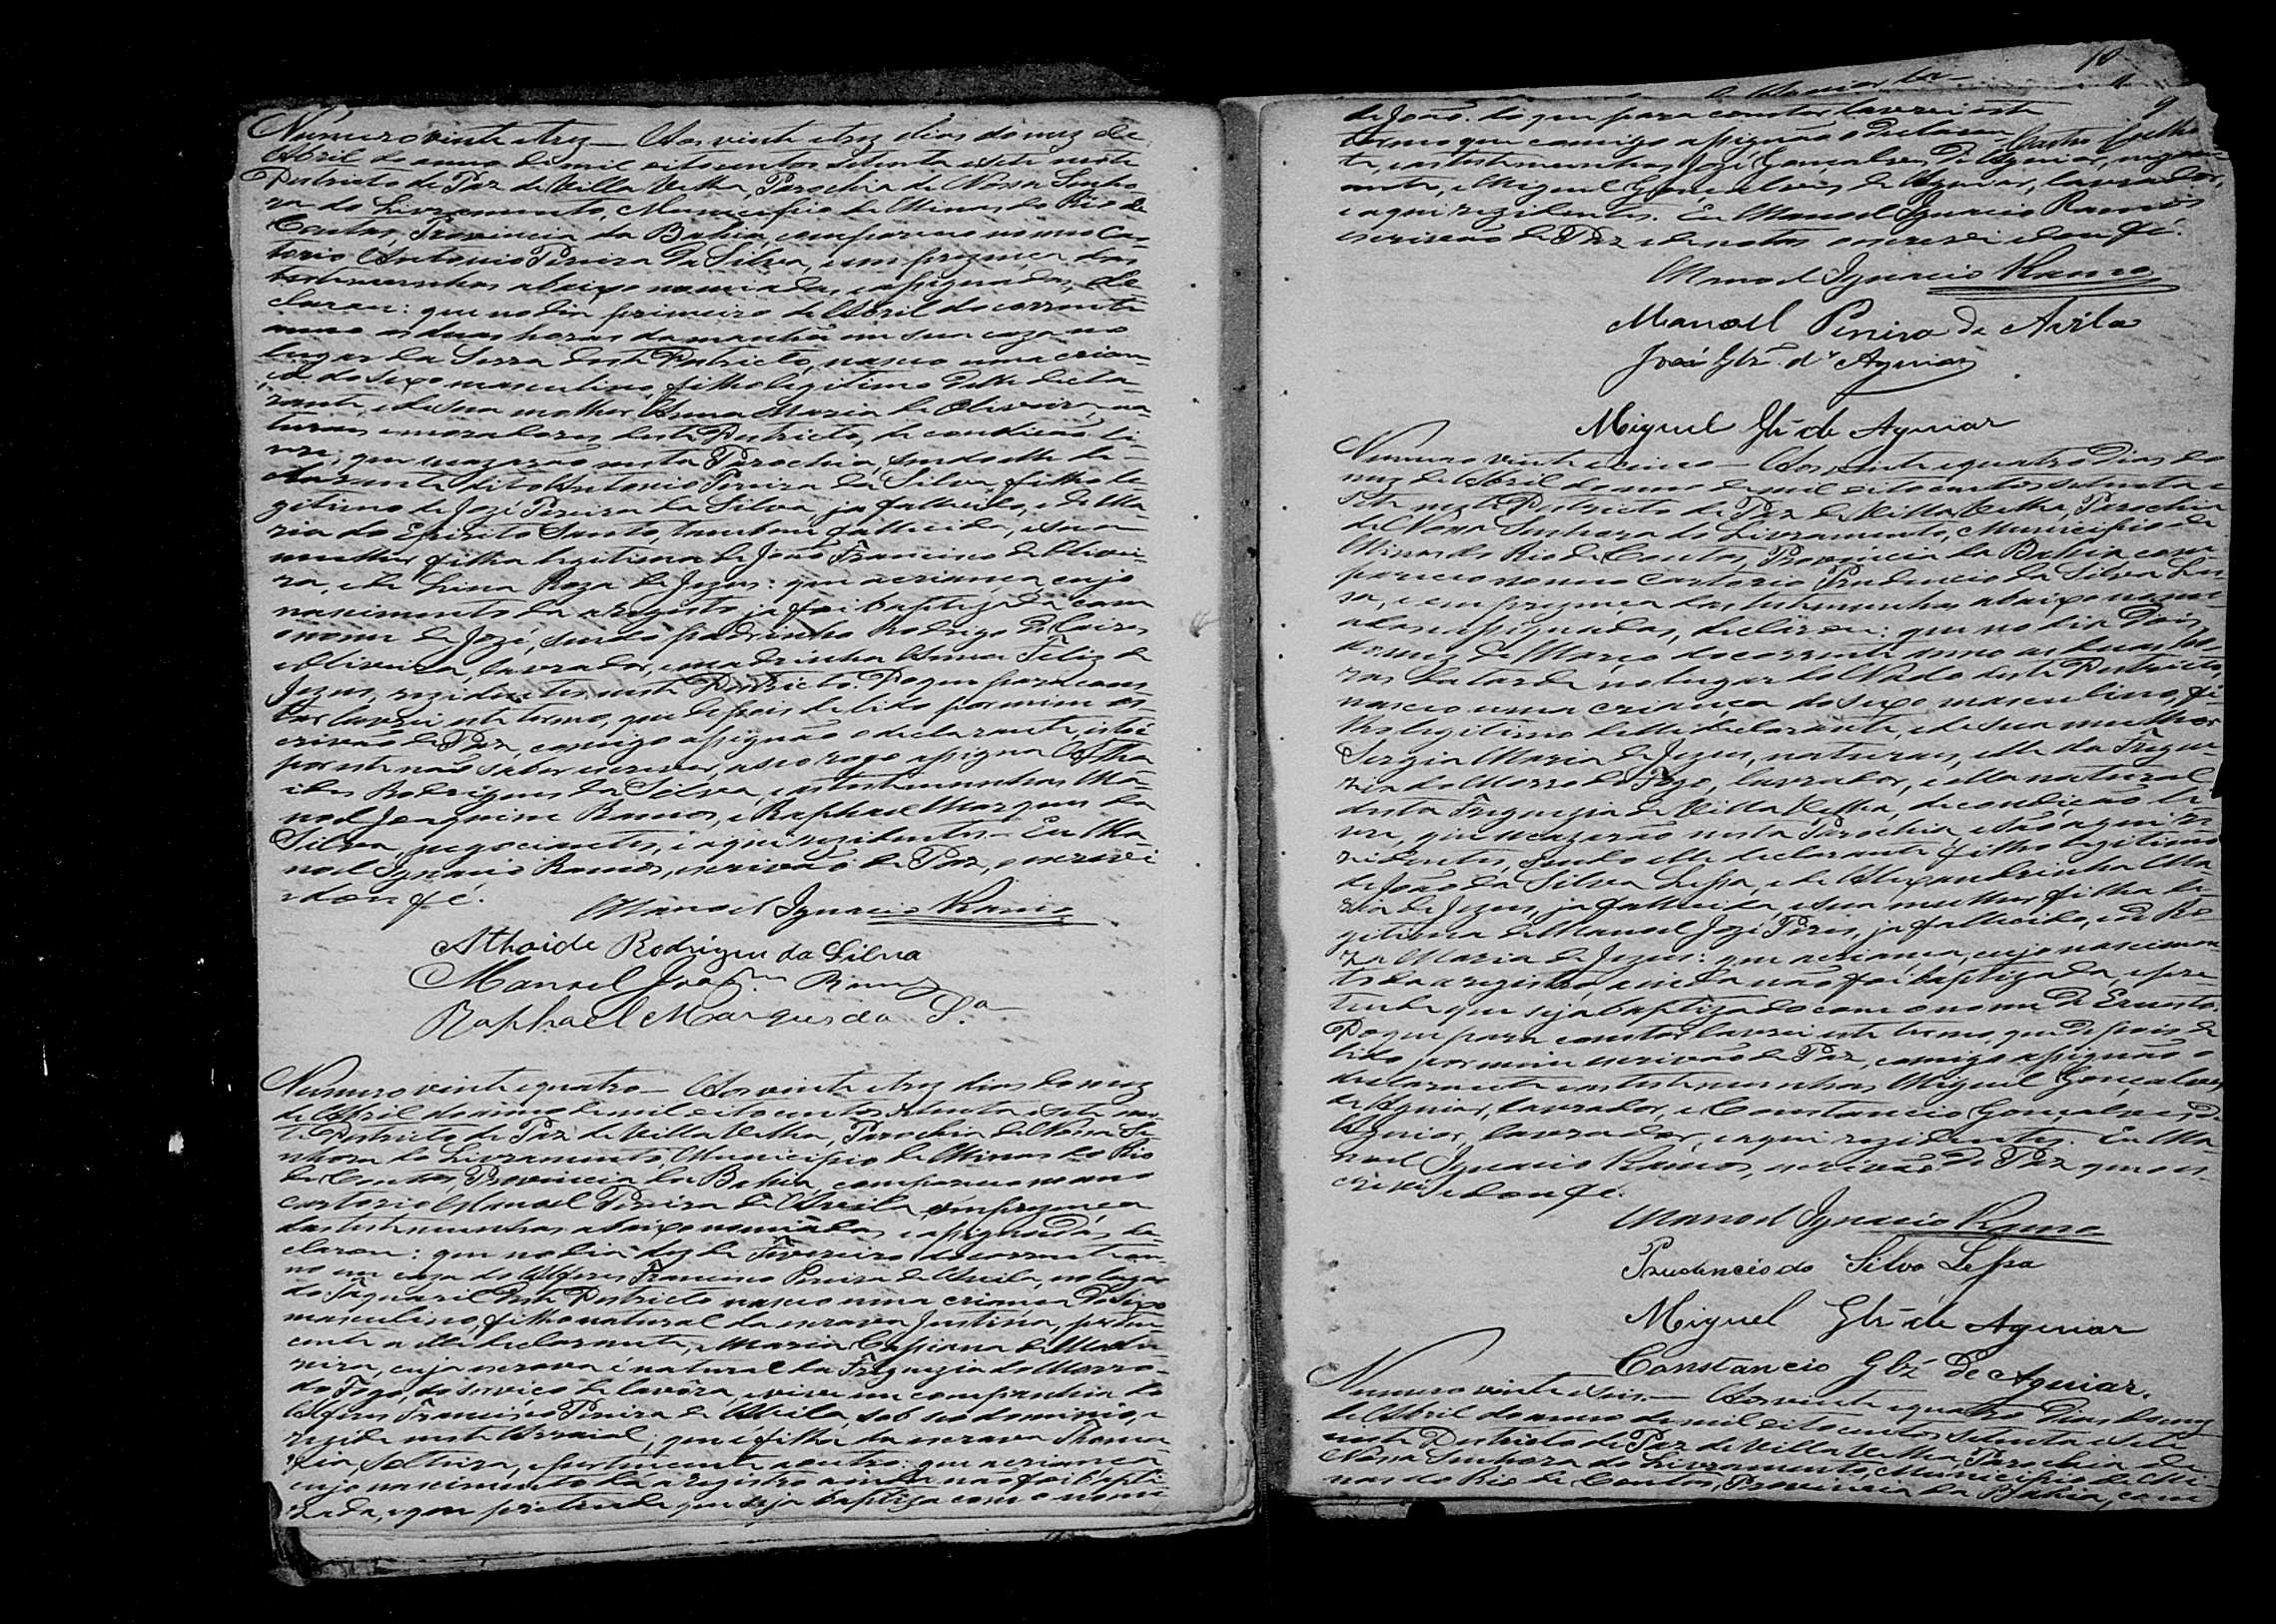 Numero vinte e trez — Aos vinte e trez dias do mez de
Abril do anno de mil oito centos setenta e sete neste
Destricto de Paz de Villa Velha, Parochia de Nossa Senho-
ra do Livramento, Municipio de Minas do Rio de
Contas, Provincia da Bahia, compareceo no meo Ca-
torio Antonio Pereira da Silva, e em prezença das
testemunhas abaixo nomiadas, e assignadas, de-
clarou: que no dia primeiro de Abril do corrente
anno as duas horas da manhã em sua caza no
lugar da Serra deste Destricto, nasceo uma crian-
ça do sexo masculino, filho legitimo delle decla-
rante e de sua molher Anna Maria de Oliveira, na-
turaes e moradores deste Destricto, de condicão li-
vre; que se cazarão nesta Parochia, sendo elle de-
clarante dito Antonio Pereira da Silva filho le-
gitimo de Jozé Pereira da Silva já fallecido, e de Ma-
ria do Espirito Santo, tambem fallecida, e sua
mulher filha legitima de João Francisco de Olivei-
ra, e de Lina Roza de Jezus: que a criança, cujo
nascimento da a registo, ja foi baptizada com
o nome de Jozé, sendo padrinho Rodrigo de Caires
e Oliveira, lavrador, e madrinha Anna Feliz de
Jezus, rezidentes neste Destricto. Do que para cons-
tar lavrei este termo, que depois de lido por mim es-
crivão de Paz, comigo assignão o declarante, isto é
por este não saber escrever, a seo rogo assigna Atha-
ides Rodrigues da Silva, e as testemunhas Ma-
noel Joaquim Ramos, e Raphael Marques da
Silva, negociantes, e aqui rezidentes. Eu Ma-
noel Ignacio Ramos, escrivão de Paz, o escrevi
e dou fé.
Manoel Ignacio Ramos
Athaide Rodrigues da Silva
Manoel Joaqm Ramos
Raphael Marques da Sa
Numero vinte e quatro — Aos vinte e trez dias do mez
de Abril do anno de mil oito centos setenta e sete nes-
te Destricto de Paz de Villa Velha, Parochia de Nossa Se-
nhora do Livramento, Municipio de Minas do Rio
de Contas, Provincia da Bahia, compareceo no meo
cartorio Manoel Pereira de Avila, e em prezença
das testemunhas abaixo nomiadas e assignadas, de-
clarou: que no dia dez de Fevereiro do corrente an-
no em caza do Alferes Francisco Pereira de Avila, no lugar
do Taquaril deste Destricto nasceo uma criança do sexo
masculino, filho natural da escrava Justina, perten-
cente a elle declarante, e Maria Cassiana de Madu-
reira, cuja escrava é natural da Freguezia do Morro
do Fogo, do serviço de lavôra, e vive em companhia do
Alferes Francisco Pereira de Avila, sob seo dominio, e
rezide neste Arraial; que é filha da escrava Thoma-
zia, solteira, e pertencente a outro: que a criança
cujo nascimento dá a registro ainda não foi bapti-
zada, e que pretende que seja baptiza com o nome
10
de João. Do que para constar lavrei este
termo que comigo assignão o declaran-
te, e as testemunhas Jozé Gonçalves de Aguiar, nego-
ciante, e Miguel Gonçalves de Aguiar, lavrador,
e aqui rezidentes. Eu Manoel Ignacio Ramos
escrivão de Paz e de notas o escrevi e dou fé.
Manoel Ignacio Ramos
Manoel Pereira de Avila
José Glz. d' Aguiar
Miguel Glz de Aguiar
Numero vinte e cinco — Aos vinte e quatro dias do
mez de Abril do anno de mil oito centos setenta e
sete neste Destricto de Paz de Villa Velha, Parochia
de Nossa Senhora do Livramento, Municipio de
Minas do Rio de Contas, Provincia da Bahia com-
pareceo no meo cartorio Prudencio da Silva Les-
sa, e em prezença das testemunhas abaixo nomi-
adas e assignadas, declarou: que no dia dois
do mez de Março do corrente anno as duas ho-
ras da tarde no lugar do Vado deste Destricto,
nasceo uma criança do sexo masculino, fi-
lho legitimo delle declarante, e de sua mulher
Sergia Maria de Jezus, naturaes, elle da Fregue-
zia do Morro do Fogo, lavrador, e ella natural
desta Freguezia de Villa Velha, de condição li-
vre, que se cazarão nesta Parochia, e são aqui re-
zidentes, sendo elle declarante filho legitimo
de João da Silva Lessa, e de Alexandrinha Ma-
ria de Jezus, ja fallecida, e sua mulher filha le-
gitima de Manoel Jozé Peres, ja fallecido, e de Ro-
za Maria de Jezus: que a criança, cujo nascimen-
to da a registro, ainda não foi baptizada, e pre-
tende que seja baptizado com o nome de Ernesto.
Do que para constar lavrei este termo, que depois de
lido por mim escrivão de Paz, comigo assignão o
declarante e as testemunhas Miguel Gonçalves
de Aguiar, lavrador, e Constancio Gonçalves de
Aguiar, lavrador, e aqui rezidentes. Eu Ma-
noel Ignacio Ramos, escrivão de Paz que es-
crevi e dou fé.
Manoel Ignacio Ramos
Prudencio da Silva Lessa
Miguel Glz de Aguiar
Constancio Glz de Aguiar.
Numero vinte e seis. — Aos vinte e quatro dias do mez
de Abril do anno de mil oito centos setenta e sete
neste Destricto de Paz de Villa Velha, Parochia de
Nossa Senhora do Livramento, Municipio de Mi-
nas do Rio de Contas, Provincia da Bahia, com-